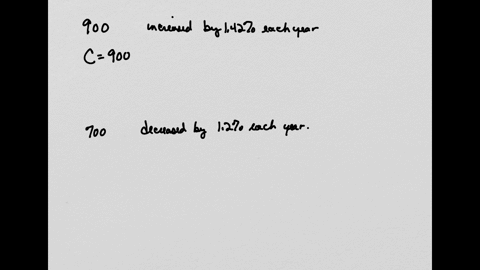 900 increased by 1.42% each year
C = 900
700 decreased by 1.2% each year.